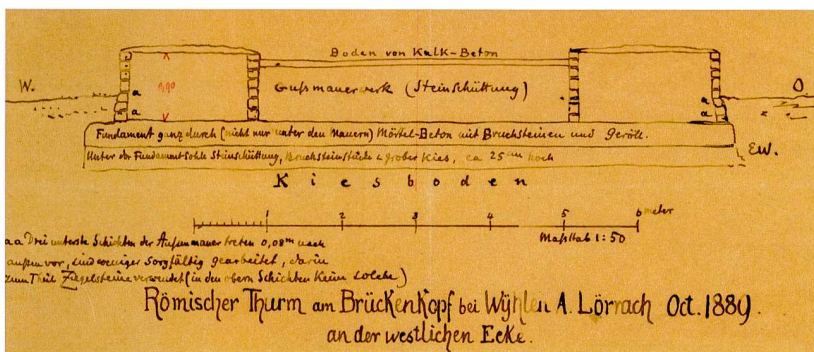 Boden von Kalk-Beton
W.
0,90
Gußmauerwerk (Steinschüttung)
O
a
a
a
a
Fundament ganz durch (nicht nur unter den Mauern) Mörtel-Beton mit Bruchsteinen und Geröll.
Unter der Fundamentsohle Steinschüttung, Bruchsteinstücke u grober Kies, ca 25 cm hoch
EW.
Kiesboden
1 2 3 4 5 6 meter
Maßstab 1:50
a a Drei unterste Schichten der Außenmauer treten 0,08m nach
außen vor, sind weniger sorgfältig gearbeitet, darin
zum Theil Ziegelsteine verwendet (in den obern Schichten keine solche)
Römischer Thurm am Brückenkopf bei Wÿhlen A. Lörrach Oct. 1889.
an der westlichen Ecke.